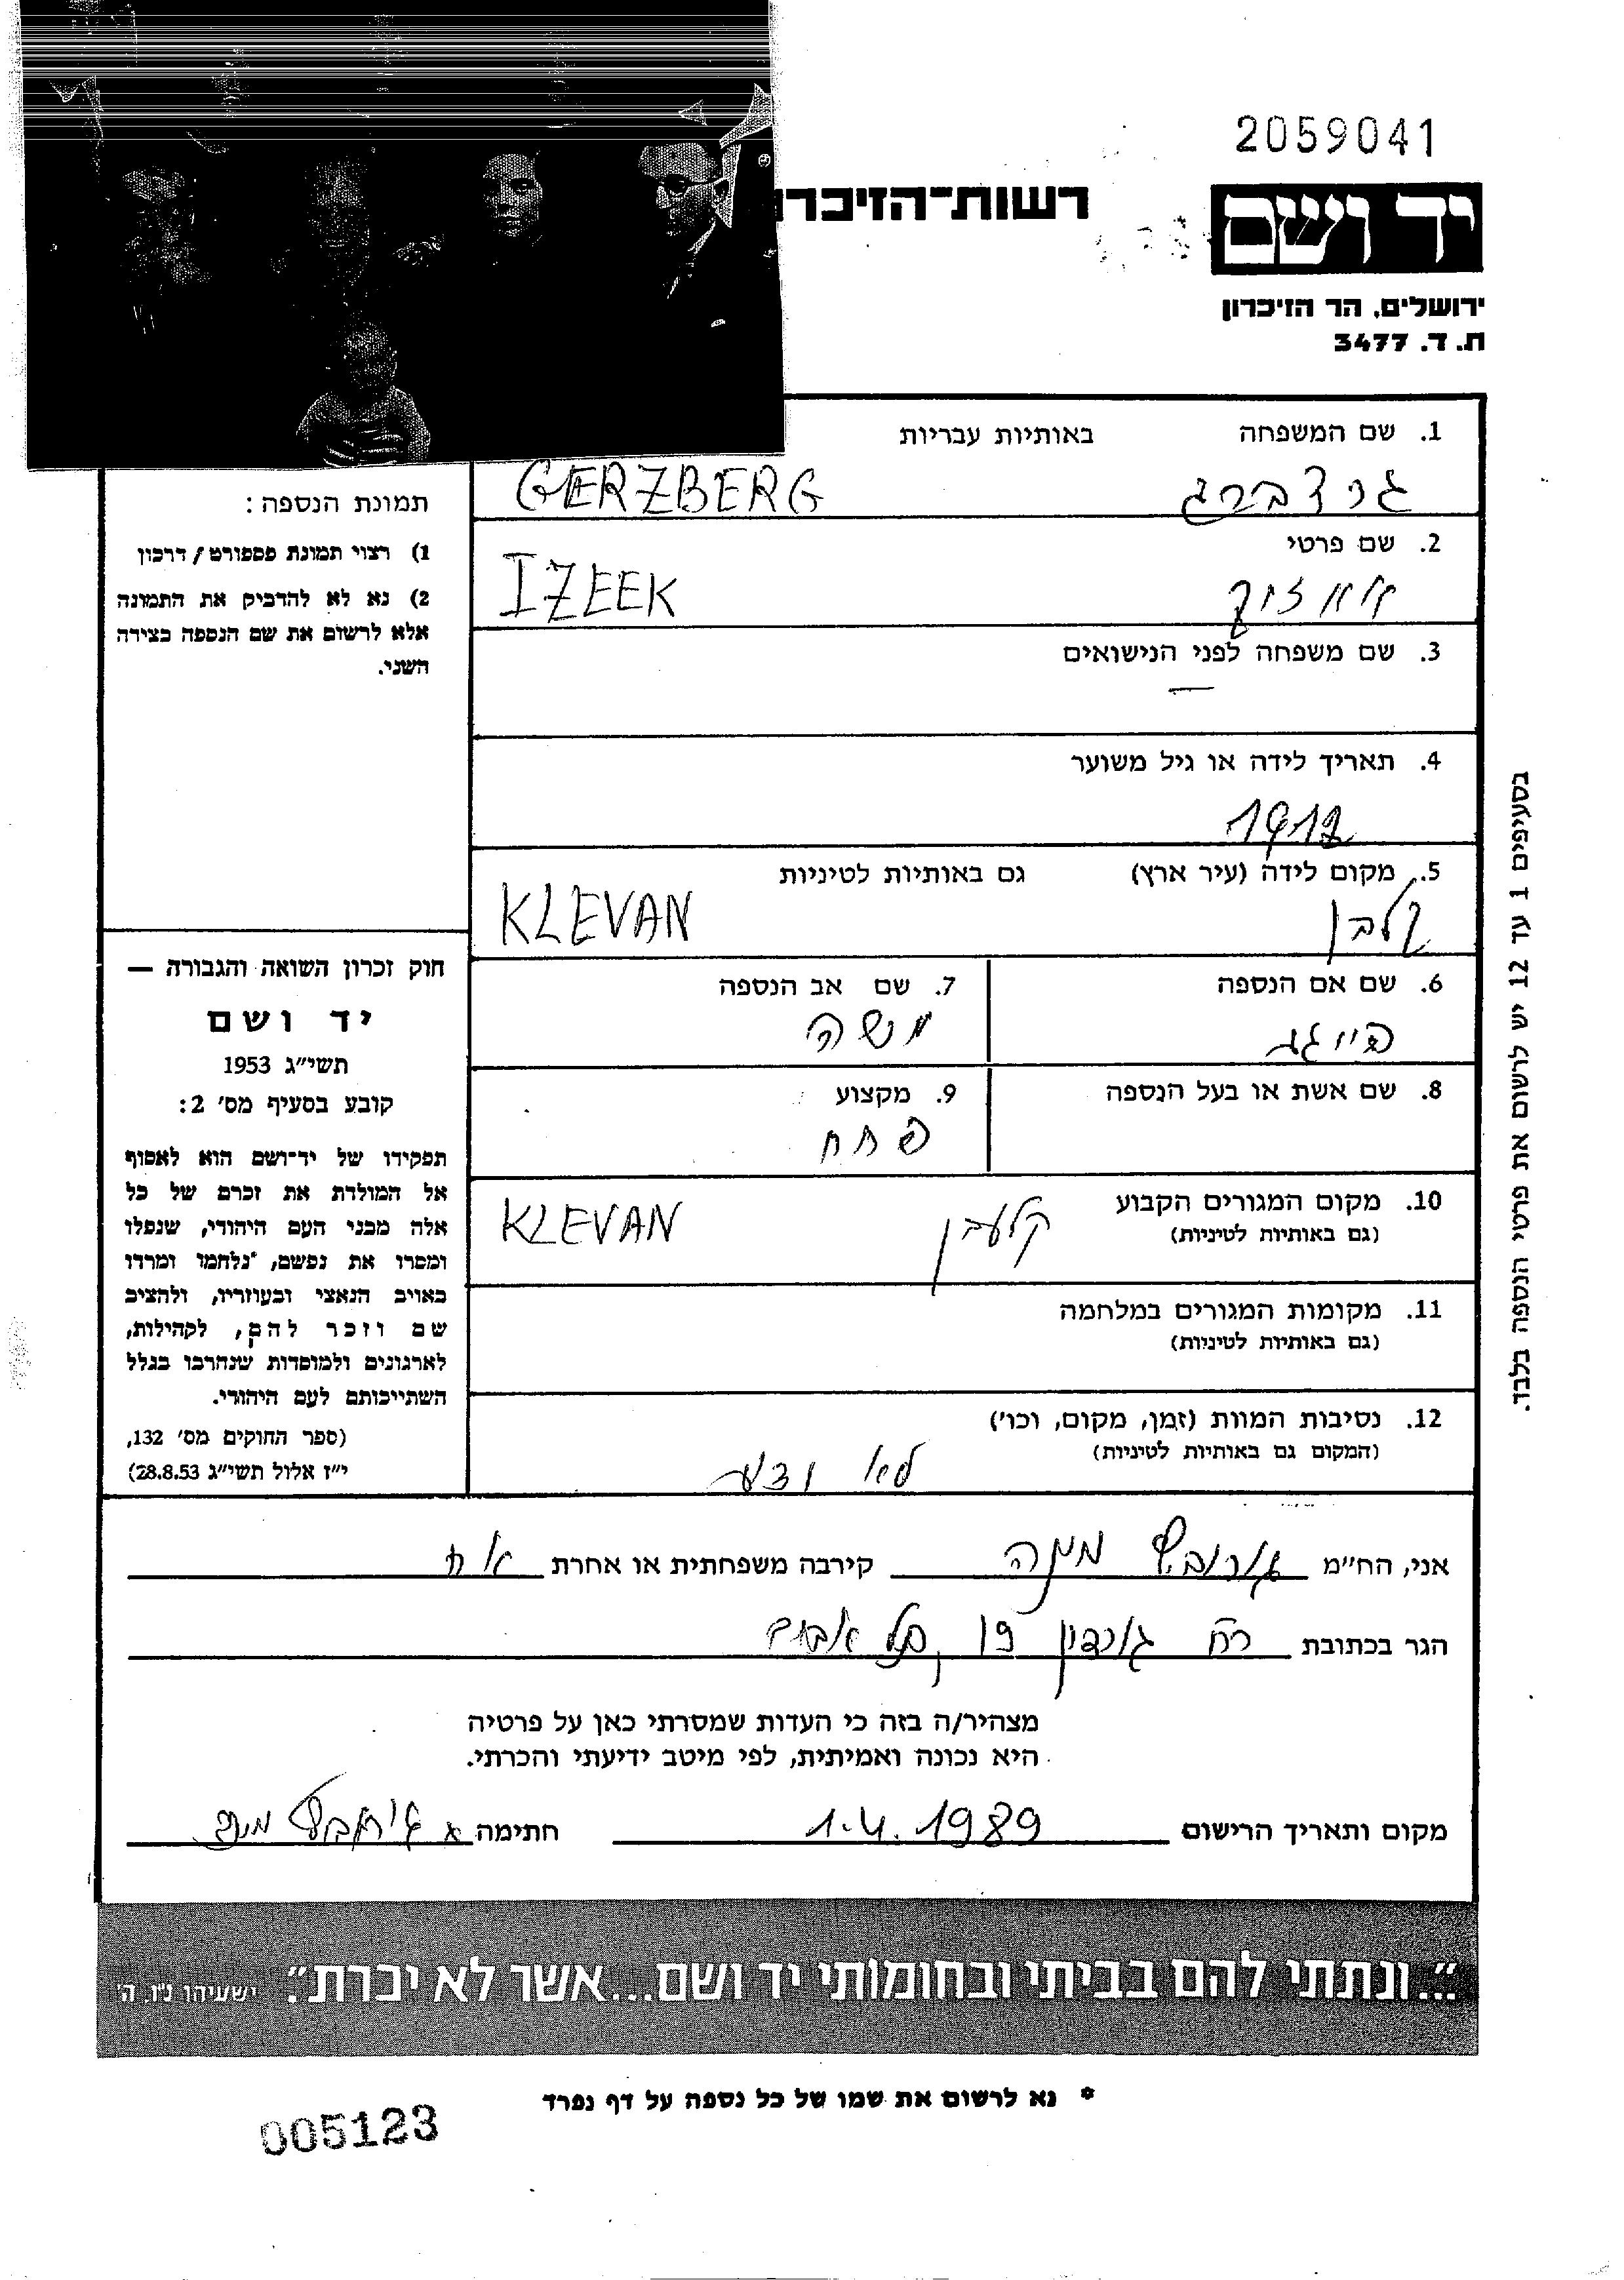 2059041
יד ושם
רשות־הזיכרו
ירושלים, הר הזיכרון
ת. ד. 3477
1. שם המשפחה באותיות עבריות
גרצברג GERZBERG
2. שם פרטי
IZEEK
3. שם משפחה לפני הנישואים
—
4. תאריך לידה או גיל משוער
1912
5. מקום לידה (עיר ארץ) גם באותיות לטיניות
קלבן KLEVAN
6. שם אם הנספה
פייגה
7. שם אב הנספה
משה
8. שם אשת או בעל הנספה
9. מקצוע
פחח
10. מקום המגורים הקבוע
(גם באותיות לטיניות)
קלעבן KLEVAN
11. מקומות המגורים במלחמה
(גם באותיות לטיניות)
12. נסיבות המוות (זמן, מקום, וכו')
(המקום גם באותיות לטיניות)
לא ידוע
תמונת הנספה:
1) רצוי תמונת פספורט/דרכון
2) נא לא להדביק את התמונה
אלא לרשום את שם הנספה בצידה
השני.
חוק זכרון השואה והגבורה —
יד ושם
תשי״ג 1953
קובע בסעיף מס׳ 2:
תפקידו של יד־ושם הוא לאסוף
אל המולדת את זכרם של כל
אלה מבני העם היהודי, שנפלו
ומסרו את נפשם, נלחמו ומרדו
באויב הנאצי ובעוזריו, ולהציב
שם וזכר להם, לקהילות,
לארגונים ולמוסדות שנחרבו בגלל
השתייכותם לעם היהודי.
(ספר החוקים מס׳ 132,
י״ז אלול תשי״ג 28.8.53)
בסעיפים 1 עד 12 יש לרשום את פרטי הנספה בלבד.
אני, הח״מ קירבה משפחתית או אחרת אח
הגר בכתובת רח גורדון 19, תל אביב
מצהיר/ה בזה כי העדות שמסרתי כאן על פרטיה
היא נכונה ואמיתית, לפי מיטב ידיעתי והכרתי.
מקום ותאריך הרישום 1.4.1989 חתימה
״...ונתתי להם בביתי ובחומותי יד ושם...אשר לא יכרת״. ישעיהו נ״ו. ה׳
* נא לרשום את שמו של כל נספה על דף נפרד
005123